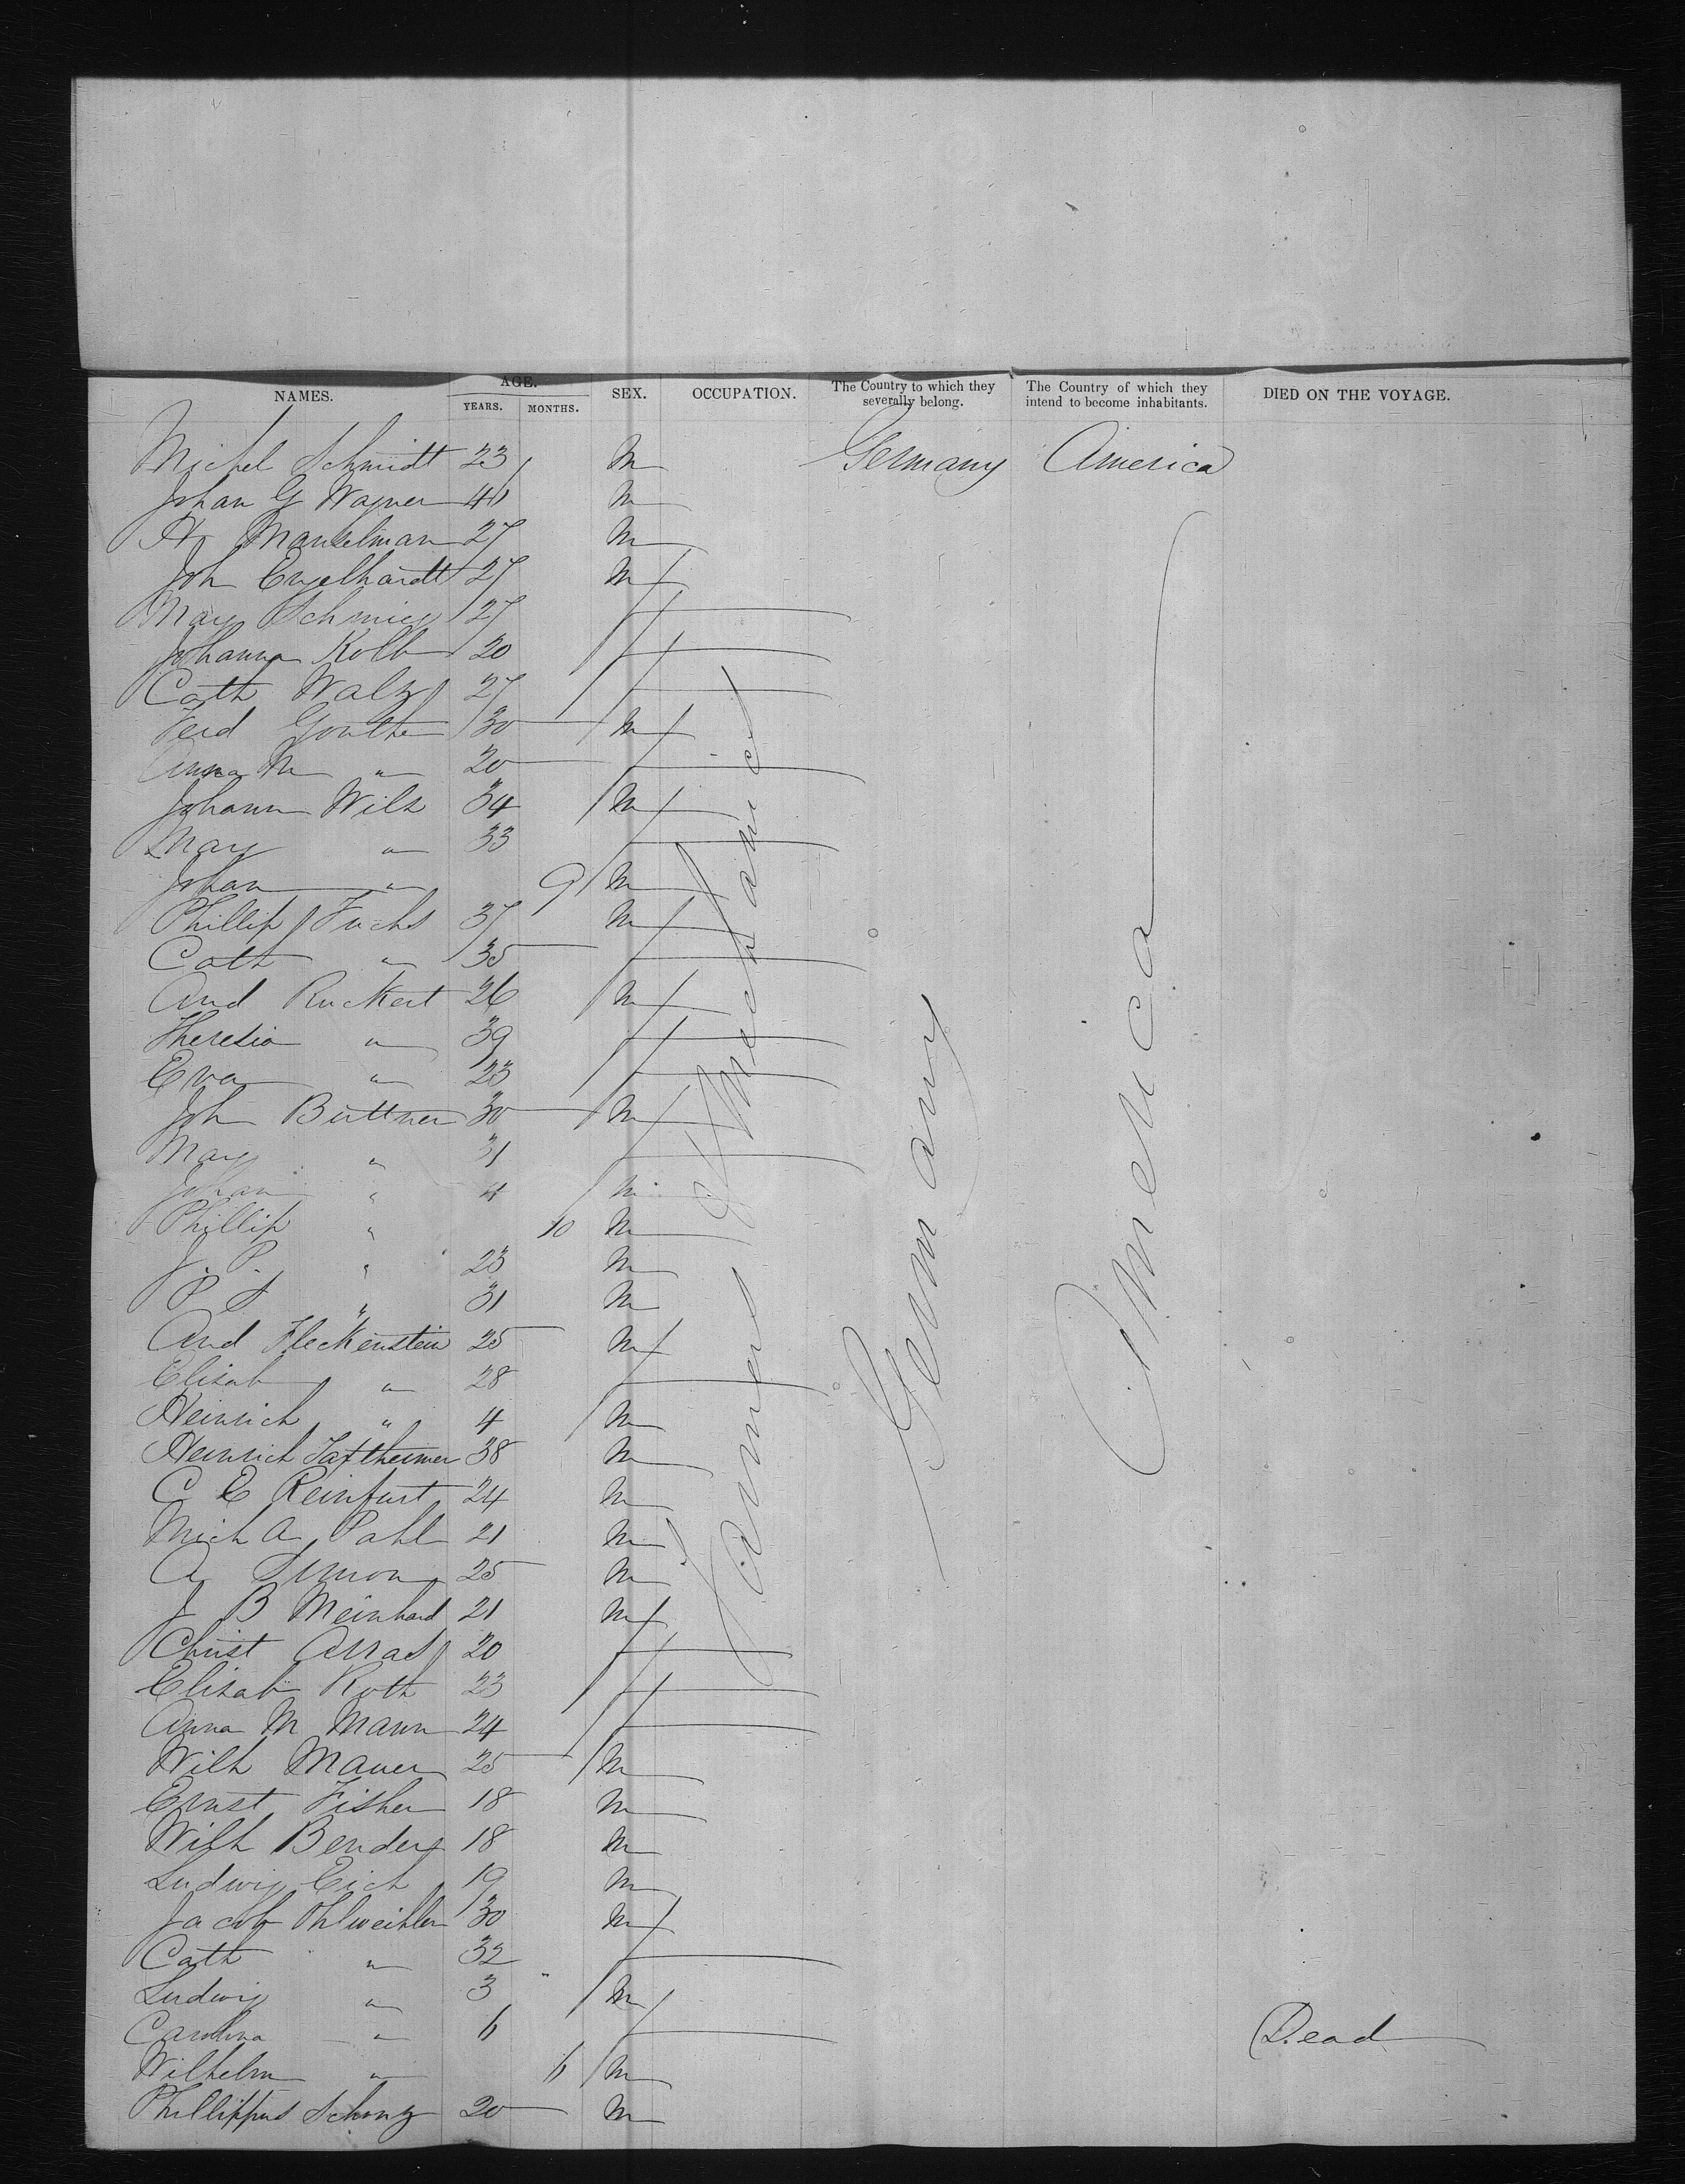 NAMES. AGE. YEARS. MONTHS. SEX. OCCUPATION. The Country to which they severally belong. The Country of which they intend to become inhabitants. DIED ON THE VOYAGE.
Michel Schmidt 23 M Germany America
Johan G Wagner 41 M
Hr Manselman 27 M
Joh Engelhardt 27 M
Mary 27 F
Johanna Kolb 20 F
Cath Walz 27 F
Ferd Gonther 30 M
Anna M " 20 F
Johann Wilz 34 M
Mary " 33 F
Johan " 9 M
Phillip Fuchs 37 M
Cath " 35 F
And Ruckert 26 M
Theresia " 39 F
Eva " 23 F
Joh Buttner 30 M
Mary " 31 F
Johan " 4 M
Phillip " 10 M
J. P. " 23 M
P S " 31 M
And Fleckenstein 25 M
Elisab " 28 F
Heinrich " 4 M
Heinrich 38 M
C E Reinfurt 24 M
Mich A Pahl 21 M
A Simon 25 M
J B Meinhard 21 M
Christ Arras 20 F
Elisab Roth 23 F
Anna M Mann 24 F
Wilh Mauer 25 M
Ernst Fisher 18 M
Wilh Bender 18 M
Ludwig Eich 19 M
Jacob Ohlweihler 30 M
Cath " 32 F
Ludwig " 3 M
Carolina " 6 F Dead
Wilhelm " 6 M
Phillippus Schonz 20 M
Farmers & Mechanics
Germany
America